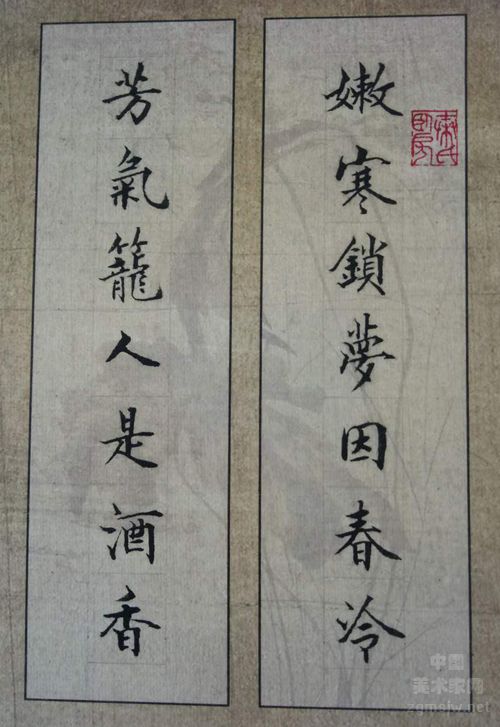 嫩寒鎖夢因春冷
芳氣籠人是酒香
中国
美术家网
zgmsjw.net